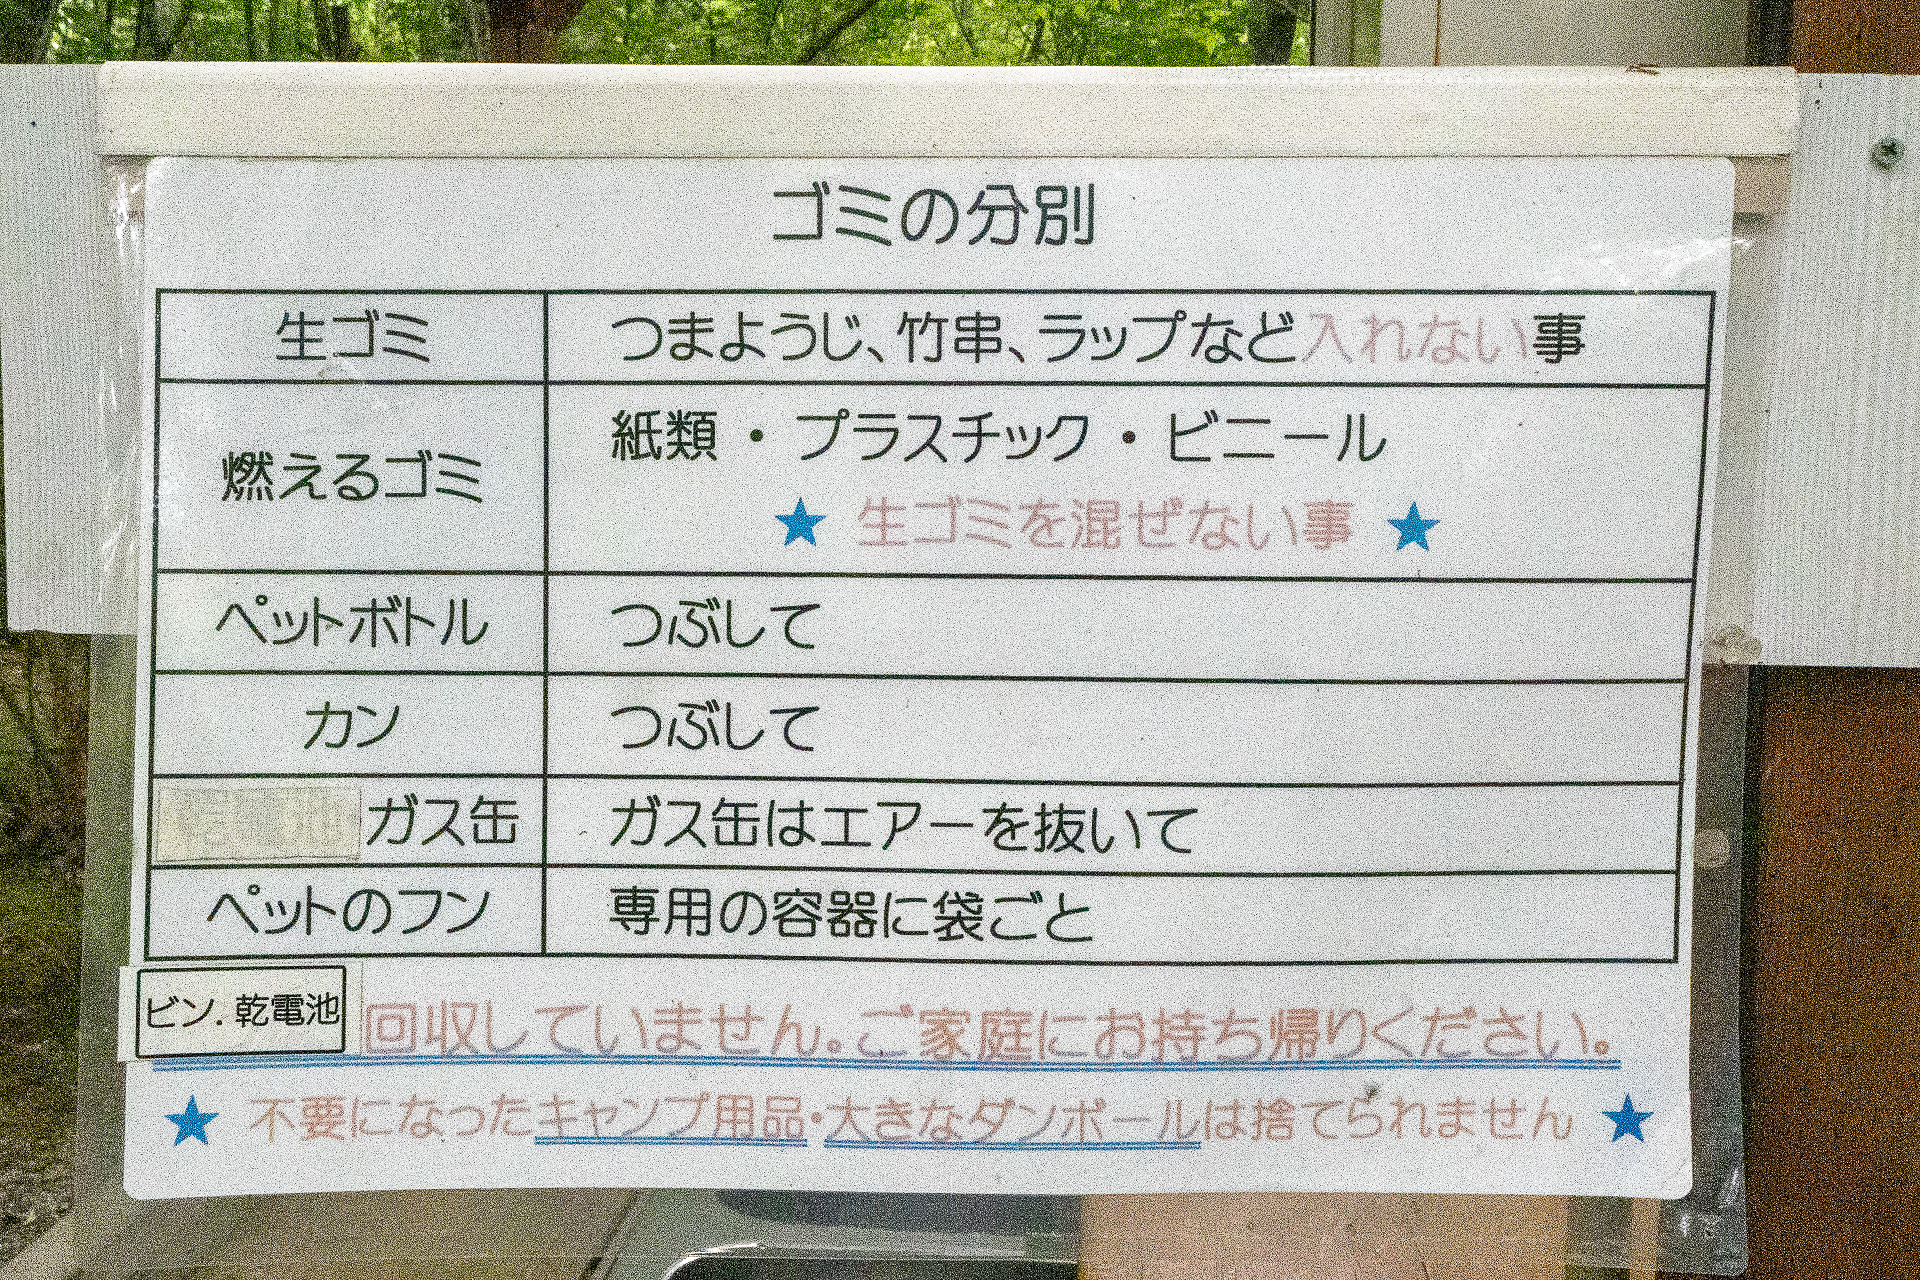 ゴミの分別
生ゴミ
つまようじ、竹串、ラップなど入れない事
燃えるゴミ
紙類・プラスチック・ビニール
★ 生ゴミを混ぜない事 ★
ペットボトル
つぶして
カン
つぶして
ガス缶
ガス缶はエアーを抜いて
ペットのフン
専用の容器に袋ごと
ビン.乾電池 回収していません。ご家庭にお持ち帰りください。
★ 不要になったキャンプ用品・大きなダンボールは捨てられません ★